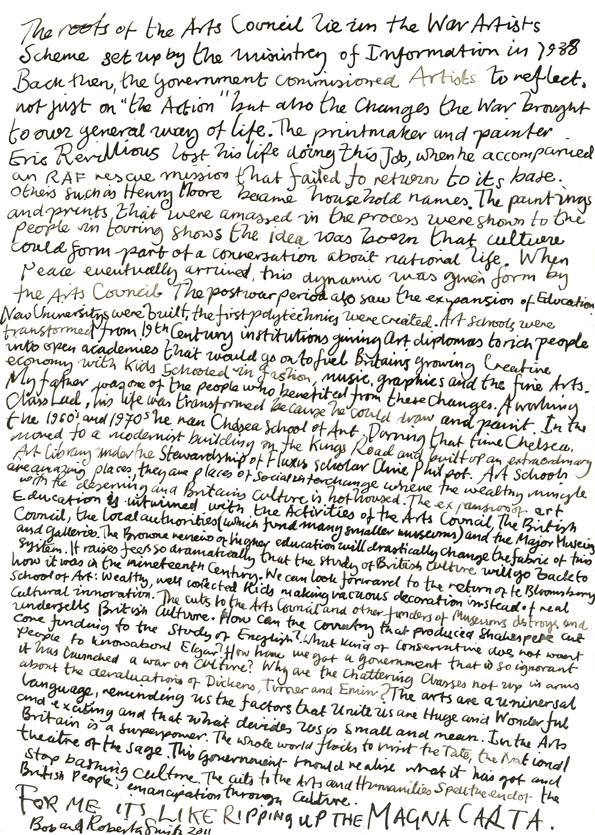 The roots of the Arts Council lie in the War Artists
Scheme set up by the ministrey of Information in 1938
Back then, the Government commisioned Artists to reflect,
not just on "the Action" but also the Changes the War brought
to our general way of life. The printmaker and painter
Eric Revillious lost his life doing this Job, when he accompanied
an RAF rescue mission that failed to return to its base.
Others such as Henry Moore became household names. The paintings
and prints that were amassed in the process were shown to the
people in touring shows the idea was born that culture
could form part of a conversation about national life. When
Peace eventually arrived, this dynamic was given form by
the Arts Council. The postwar period also saw the expansion of Education
New Universitys were built, the first polytechnics were created. Art Schools were
transformed from 19th Century institutions giving Art diplomas to rich people
into open academies that would go on to fuel Britains growing Creative
economy with Kids Schooled in fashion, music, graphics and the fine Arts.
My father was one of the people who benefited from these changes. A working
Class Lad, his life was transformed because he could draw and paint. In the
the 1960s and 1970s he ran Chelsea School of Art. During that time Chelsea,
moved to a modernist building on the Kings Road and built up an extraordinary
Art Library under the Stewardship of Fluxus scholar Clive Philpot. Art Schools
are amazing places they are places of Social interchange where the wealthy mingle
with the deserving and Britains Culture is hot housed. The expansion of art
Education is intwined with the Activities of the Arts Council, The British
Council, the Local authorities (which fund many smaller museums) and the Major Museums
and Galleries. The Browne review of higher education will drastically change the fabric of this
system. It raises fees so dramatically that the study of British Culture will go back to
how it was in the nineteenth Century. We can look forward to the return of te Bloomsbury
School of Art: Wealthy, well conected Kids making vacuous decoration instead of real
Cultural innovation. The cuts to the Arts Council and other funders of Museums distroys and
undersells British Culture. How can the Country that produced Shakespere cut
core funding to the Study of English? What kind of Conservative does not want
people to know about Elgar? How have we got a government that is so ignorant
it has launched a war on Culture? Why are the Chattering Classes not up in arms
about the devaluations of Dickens, Turner and Emin? The arts are a universal
language, reminding us the factors that Unite us are Huge and Wonderful
and exciting and that what devides us is small and mean. In the Arts
Britain is a superpower. The whole world flocks to visit the Tate, the National
theatre or the Sage. This Government should realise what it has got and
stop bashing Culture. The cuts to the Arts and Humanities Spell the end of the
British People's emancipation through Culture.
FOR ME ITS LIKE RIPPING UP THE MAGNA CARTA.
Bob and Roberta Smith 2011